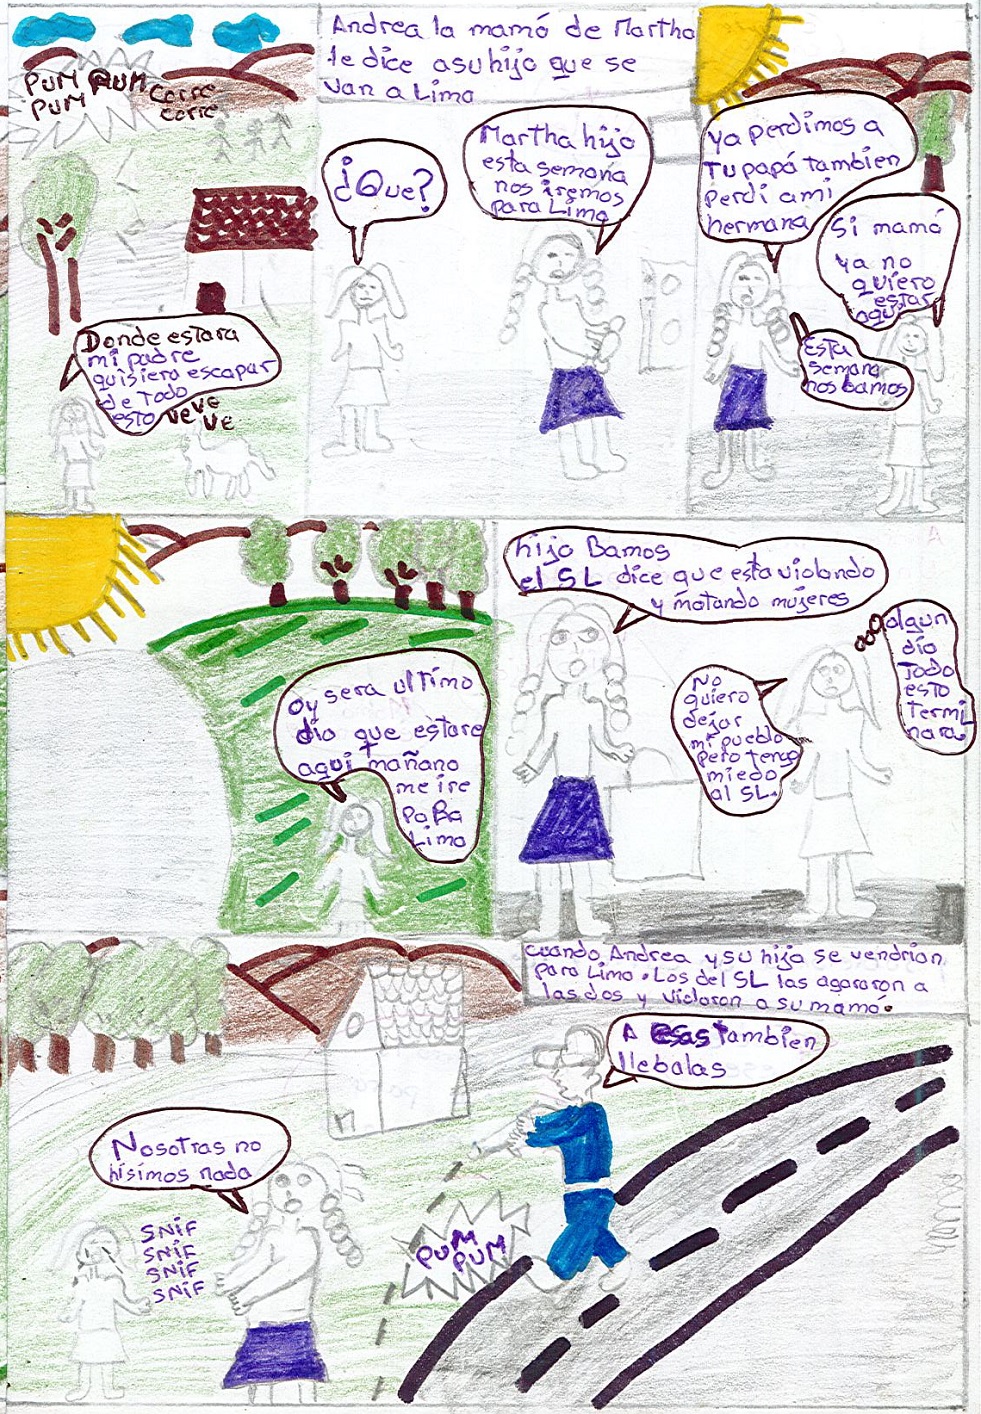 PUM PUM
PUM
corre
corre
Donde estara
mi padre
quisiera escapar
de Todo
esto
VEVE
VE
Andrea la mamá de Martha
le dice a su hijo que se
van a Lima
¡¿Que?
Martha hija
esta semana
nos iremos
para Lima
Ya perdimos a
Tu papá tambien
perdi a mi
hermana
Si mamá
ya no
quiero
estar
aqui
Esta
semana
nos bamos
Oy sera ultimo
dia que estare
aqui mañana
me ire
PaRa
Lima
hija Bamos
el SL dice que esta violando
y matando mujeres
No
quiero
dejar
mi pueblo
pero tengo
miedo
al SL.
algun
dia
Todo
esto
Termi
nara
cuando Andrea y su hija se vendrian
para Lima. Los del SL las agararon a
las dos y violaron a su mamá.
A esas Tambien
llebalas
Nosotras no
hisimos nada
SNIF
SNIF
SNIF
SNIF
PUM
PUM